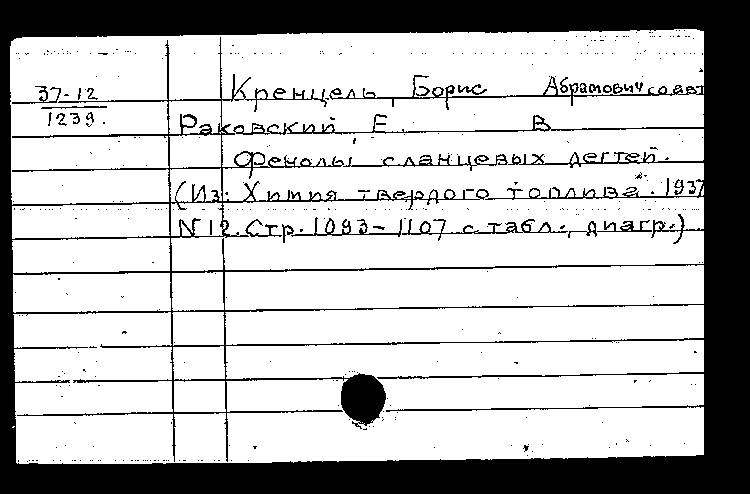 37-12
1239.
Кренцель, Борис Абрамович соавт
Раковский, Е. В
Фенолы сланцевых дегтей.
(Из: Химия твердого топлива. 1937
N 12. Стр. 1093-1107 с табл., диагр.)